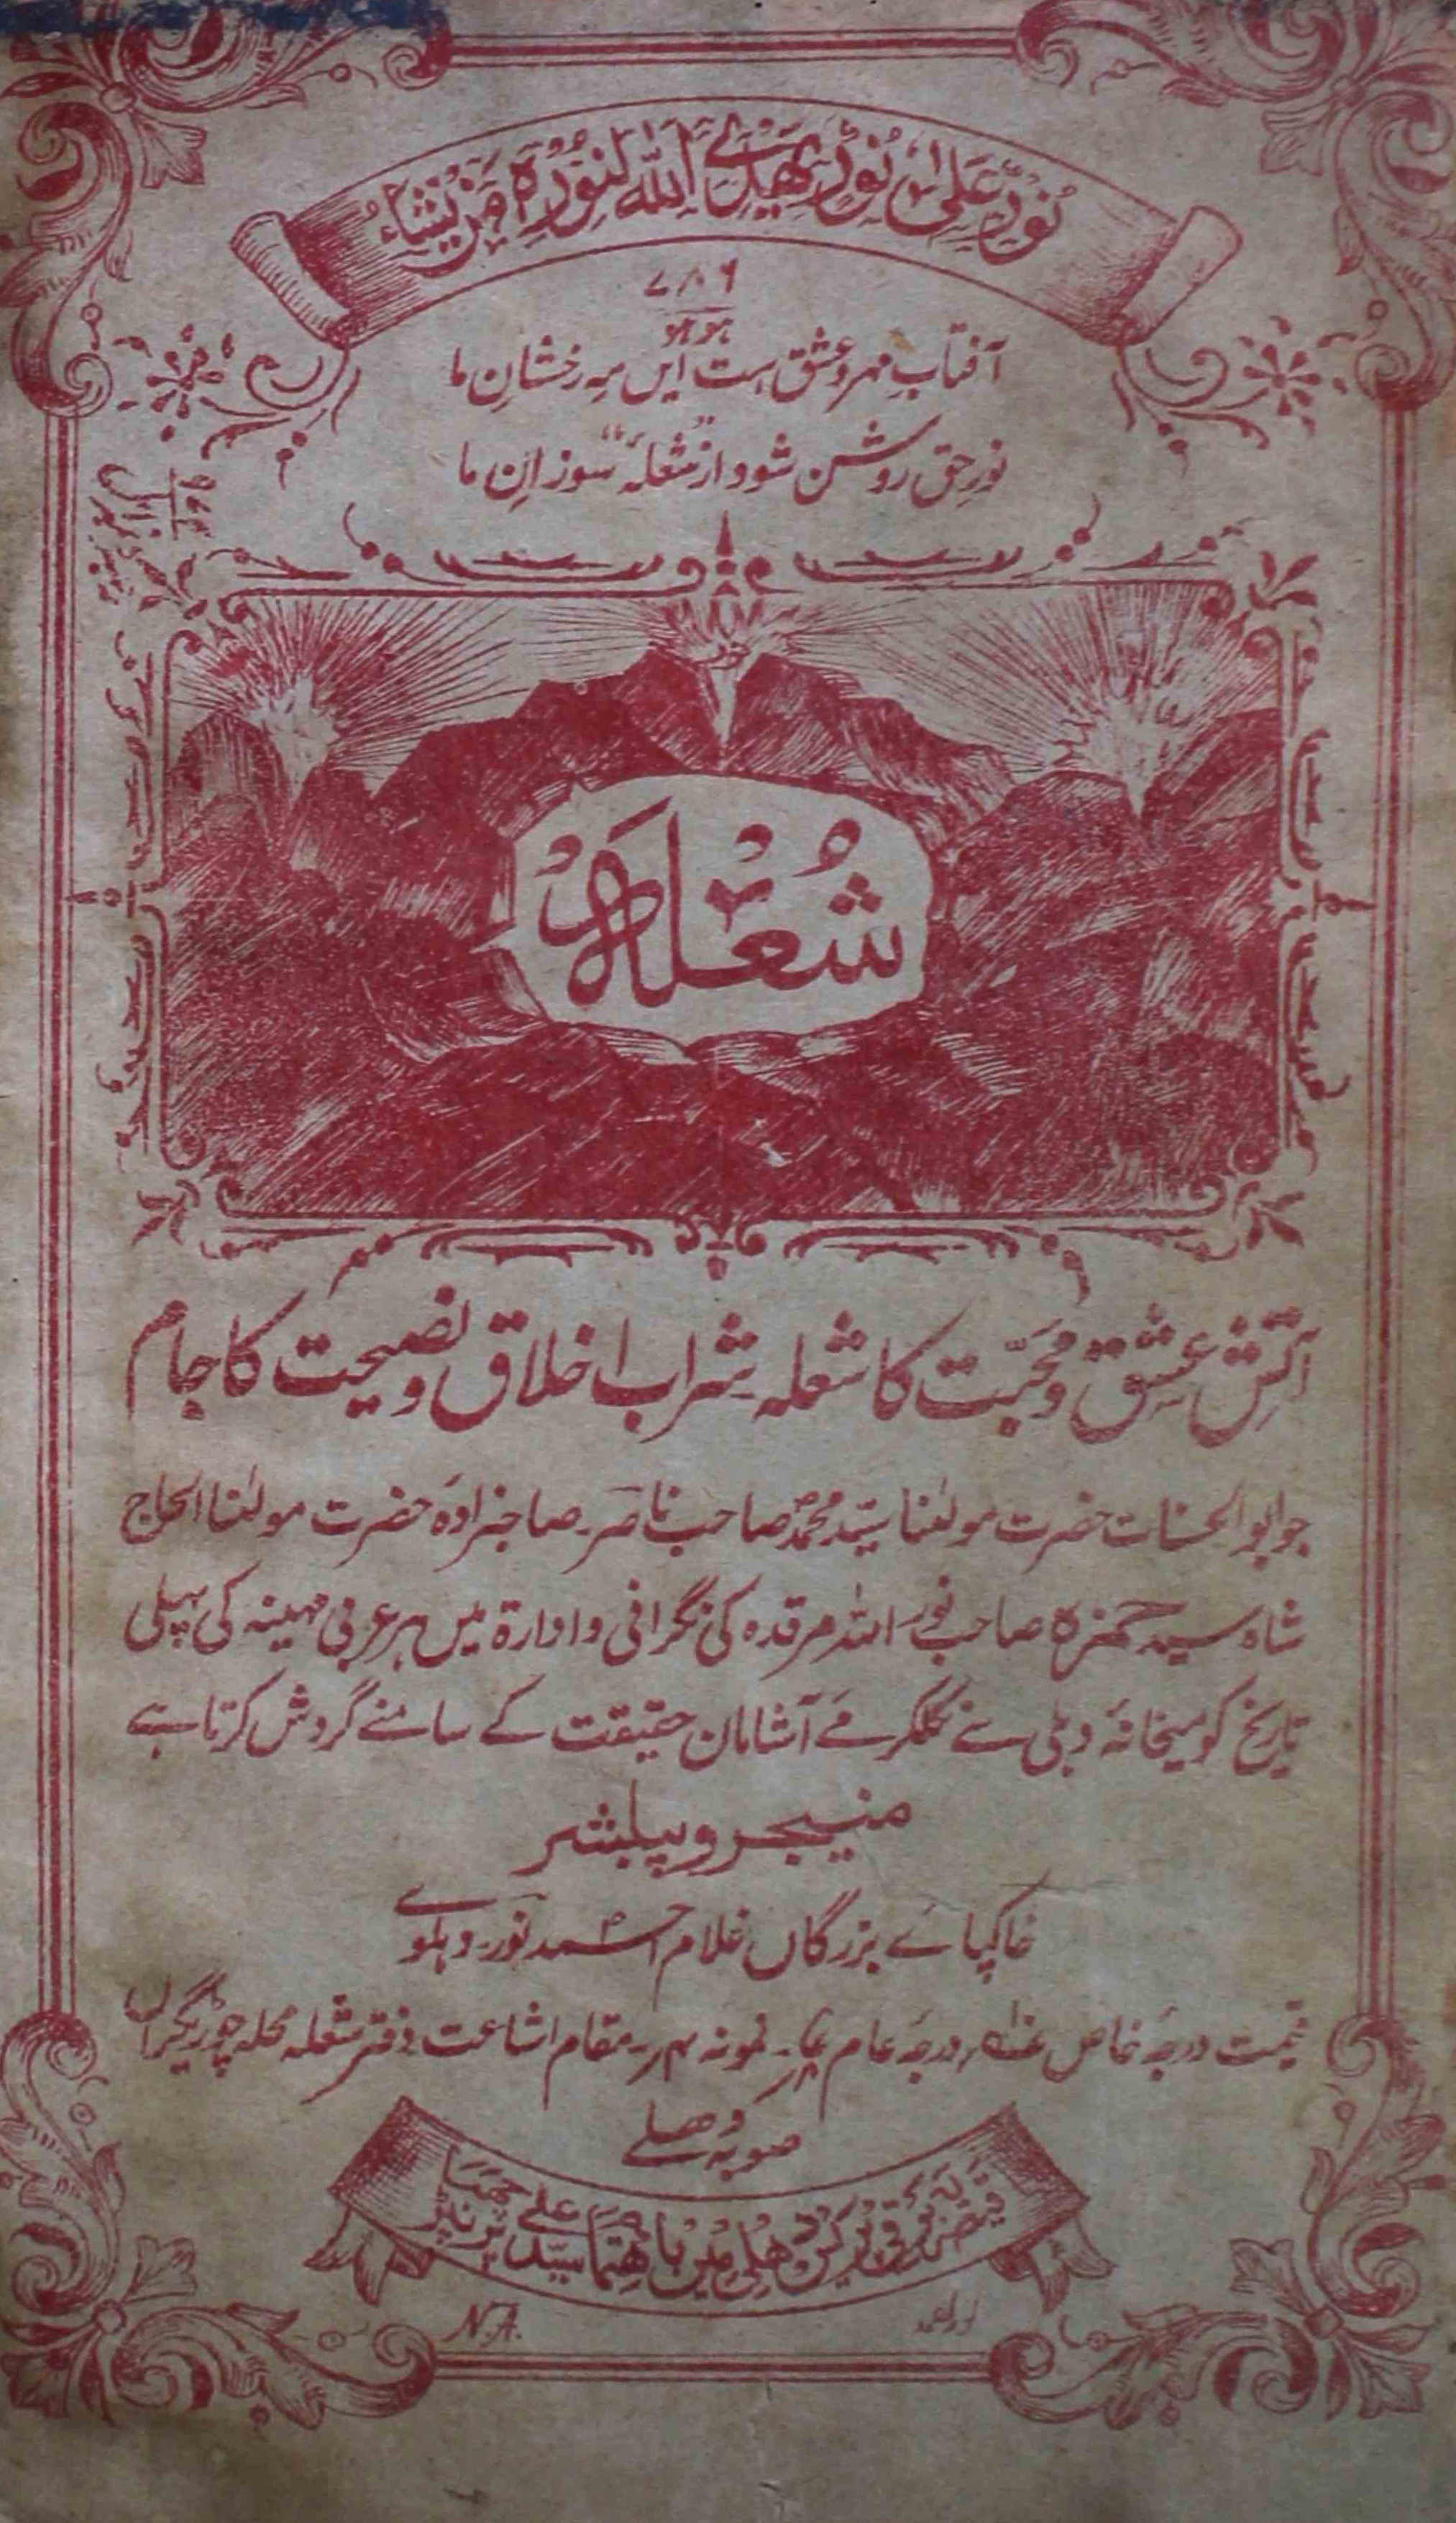 نُورٌ عَلیٰ نُورٍ یَهْدِی اللّٰهُ لِنُورِهٖ مَن یَّشَاءُ
۷۸۶
ہو ہو
آفتابِ مہر و عشق ہست ایں مہِ رخشانِ ما
نورِ حق روشن شود از "شعلۂ" سوزانِ ما
شُعْلَہ
آتشِ عشق و محبّت کا شعلہ شراب اخلاق و نصیحت کا جام
جو ابو الحسنات حضرت مولٰنا سیّد محمد صاحب ناصر صاحبزادہ حضرت مولٰنا الحاج
شاہ سید حمزہ صاحب نور اللہ مرقدہ کی نگرانی و ادارۃ میں ہر عربی مہینہ کی پہلی
تاریخ کو میخانۂ دہلی سے نکلکر مے آشامان حقیقت کے سامنے گردش کرتا ہے
منیجر و پبلشر
خاکپائے بزرگاں غلام احمد نور دہلوی
قیمت درجۂ خاص درجۂ عام نمونہ ۴؍ مقام اشاعت دفتر شعلہ محلہ چوڑیگراں
صوبہ دھلے
دھلی میں باھتما سید علے پرنٹر
N.A.